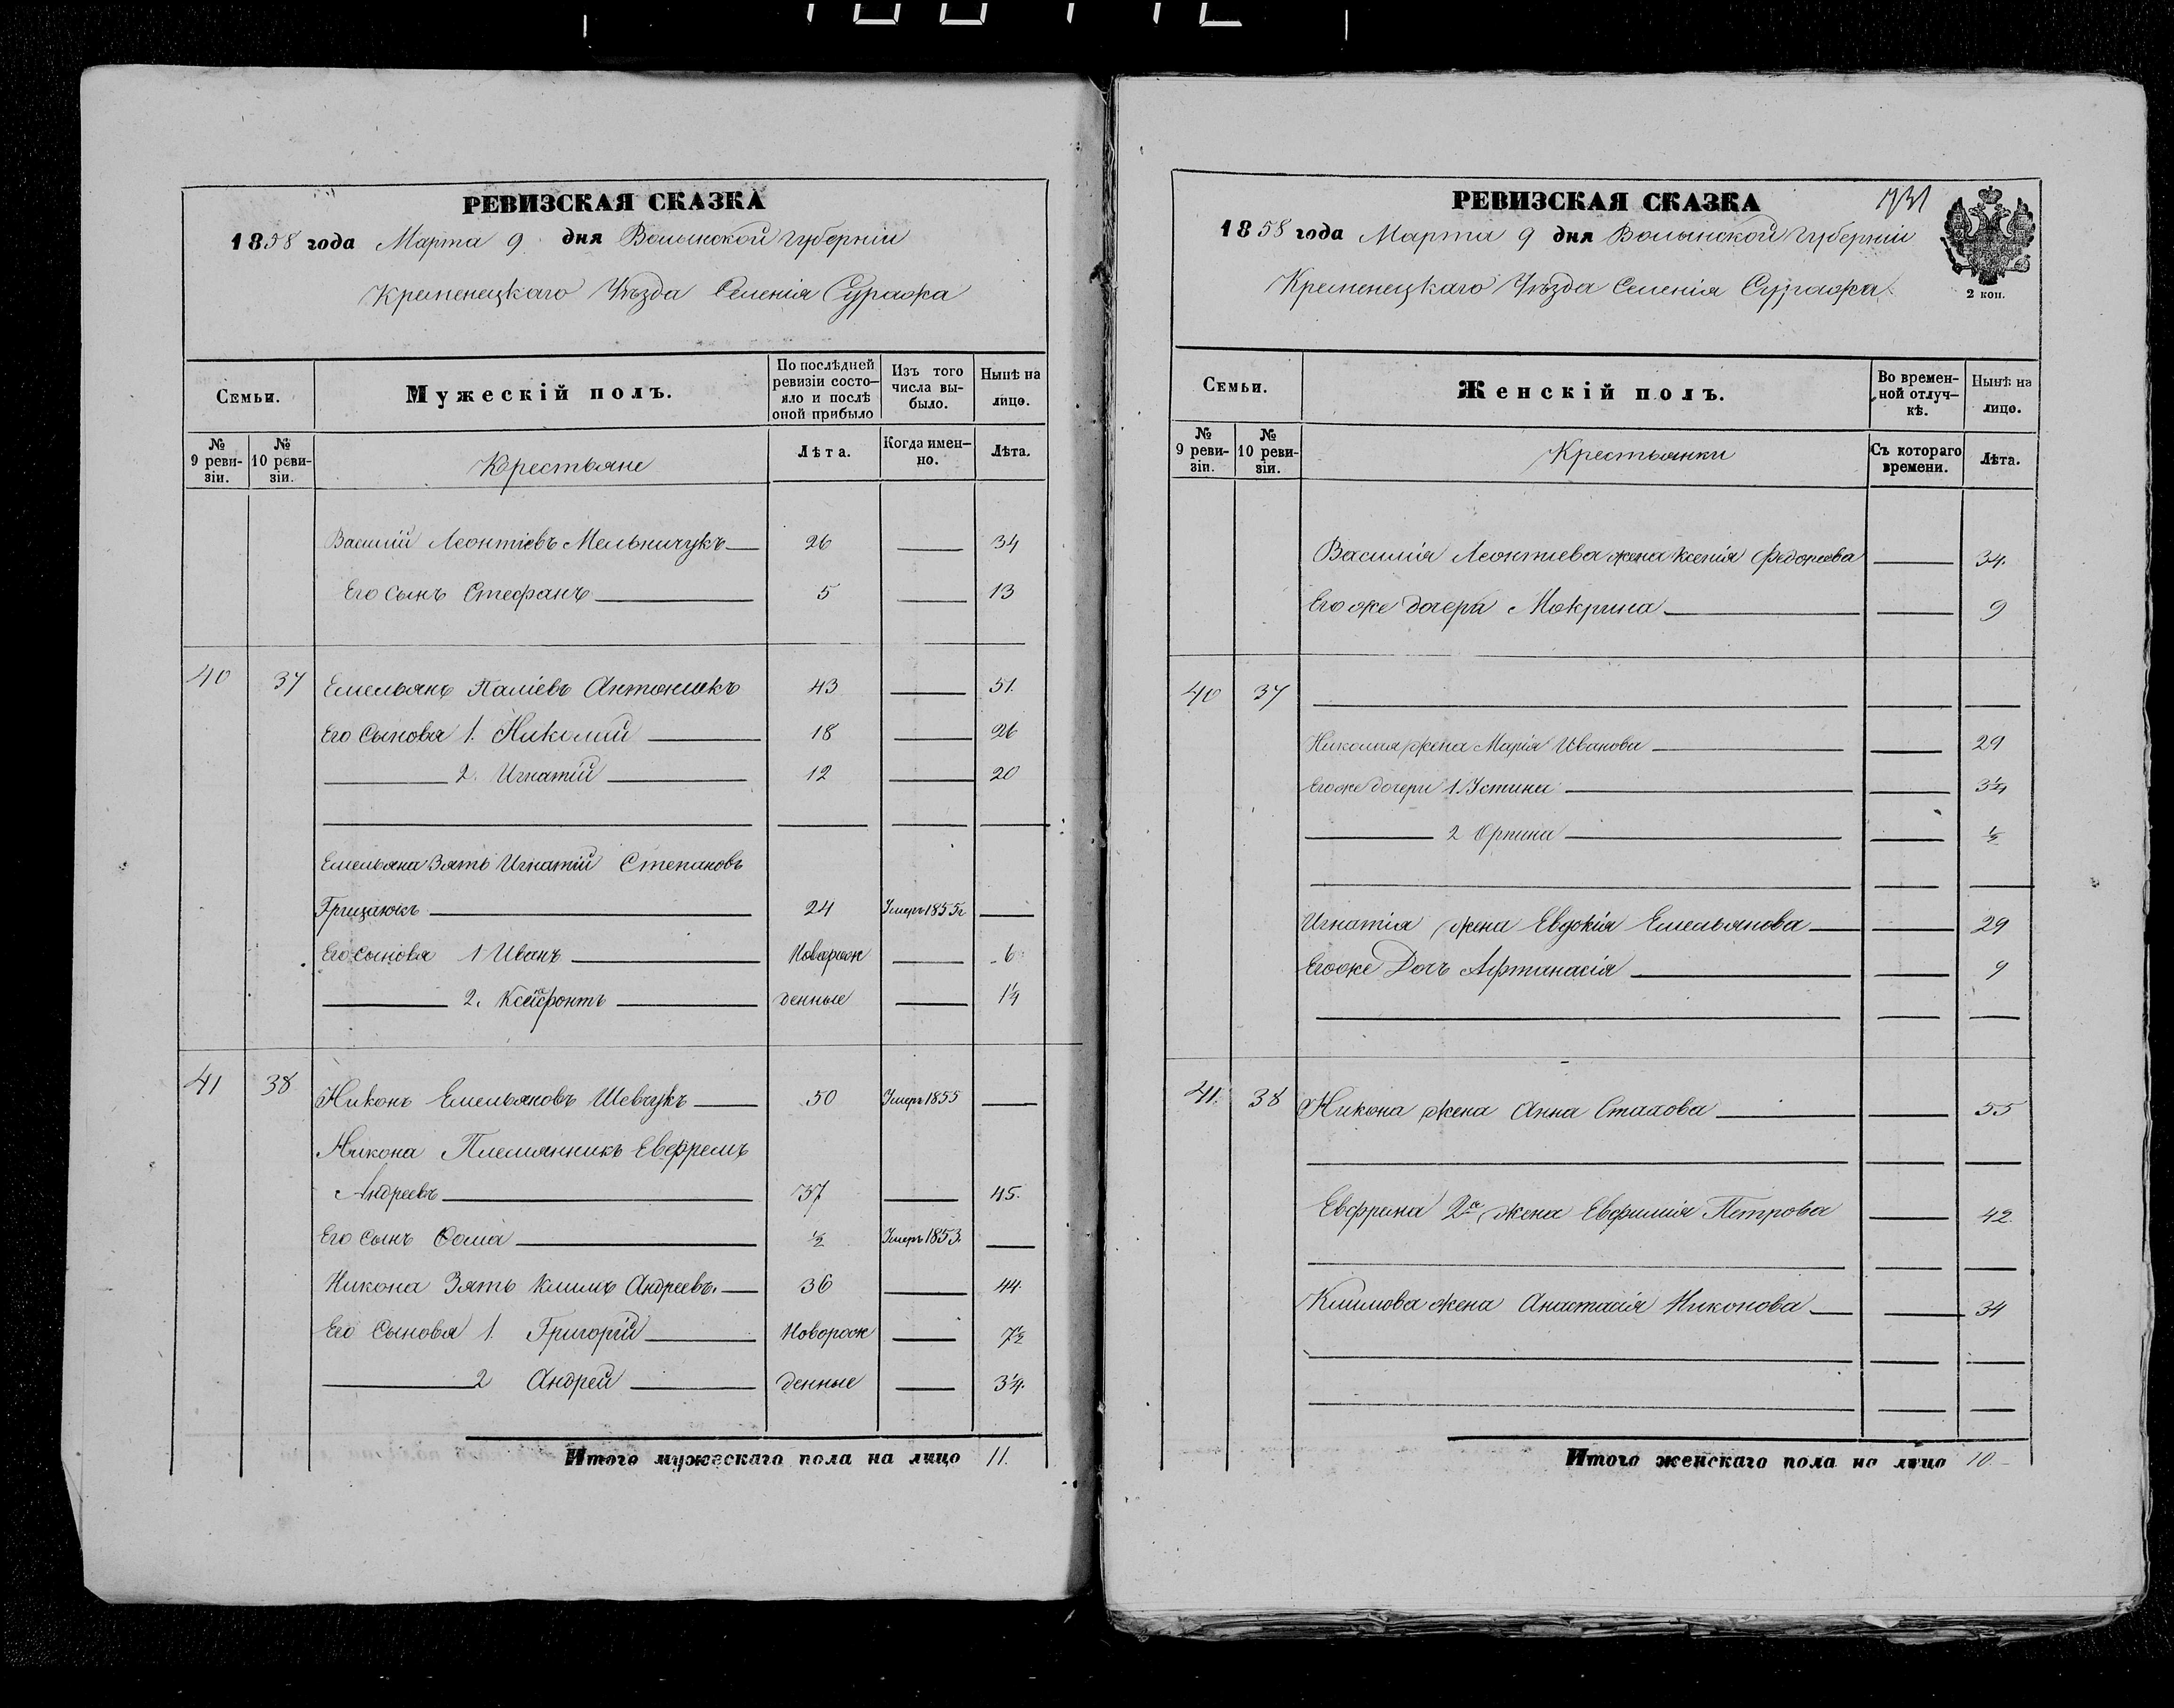 РЕВИЗСКАЯ СКАЗКА
1858 года Марта 9 дня Волынской Губерніи
Кременецкаго Уѣзда Селенія Суража
Семьи.
Мужескій полъ.
По послѣдней ревизіи состо-яло и послѣ оной прибыло
Изъ того числа вы-было.
Нынѣ на лицо.
№ 9 реви-зіи.
№ 10 реви-зіи.
Крестьяне
Лѣта.
Когда имен-но.
Лѣта.
Василій Леонтіевъ Мельничукъ 26 34
Его сынъ Стефанъ 5 13
40 37 Емельянъ Паліевъ Антонюкъ 43 51.
Его Сыновя 1. Николай 18 26
2. Игнатій 12 20
Емельяна Зять Игнатій Степановъ
Грицаюкъ 24 Умеръ 1855г
Его сыновя 1 Иванъ Новорож 6
2. Ксенофонтъ денные 1¼
41 38 Никонъ Емельяновъ Шевчукъ 50 Умеръ 1855
Никона Племянникъ Евфремъ
Андреевъ 37 45.
Его сынъ Фома ½ Умеръ 1853.
Никона Зять Климъ Андреевъ. 36 44
Его Сыновя 1. Григорій Новорож 7½
2 Андрей денные 3¼.
Итого мужескаго пола на лицо 11.
РЕВИЗСКАЯ СКАЗКА
731
1858 года Марта 9 дня Волынской Губерніи
Кременецкаго Уѣзда Селенія Суража
2 коп.
Семьи.
Женскій полъ.
Во времен-ной отлуч-кѣ.
Нынѣ на лицо.
№ 9 реви-зіи.
№ 10 реви-зіи.
Крестьянки
Съ котораго времени.
Лѣта.
Василія Леонтіева жена Ксенія Федорова 34.
Его же дочери Мокрина 9
40 37
Николая жена Марія Иванова 29
Его же дочери 1. Устина 3¼
2 Орпина ½
Игнатія жена Евдокія Емельянова 29
Его же Дочь Афтанасія 9
41. 38 Никона жена Анна Стахова 55
Евфрема 2я жена Евфимія Петрова 42.
Климова жена Анастасія Никонова 34
Итого женскаго пола на лицо 10.